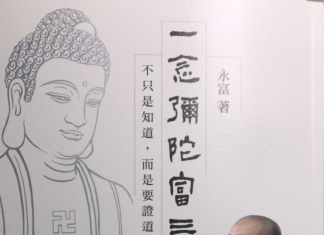 永富 著
一念彌陀富三
不只是知道，而是要證道